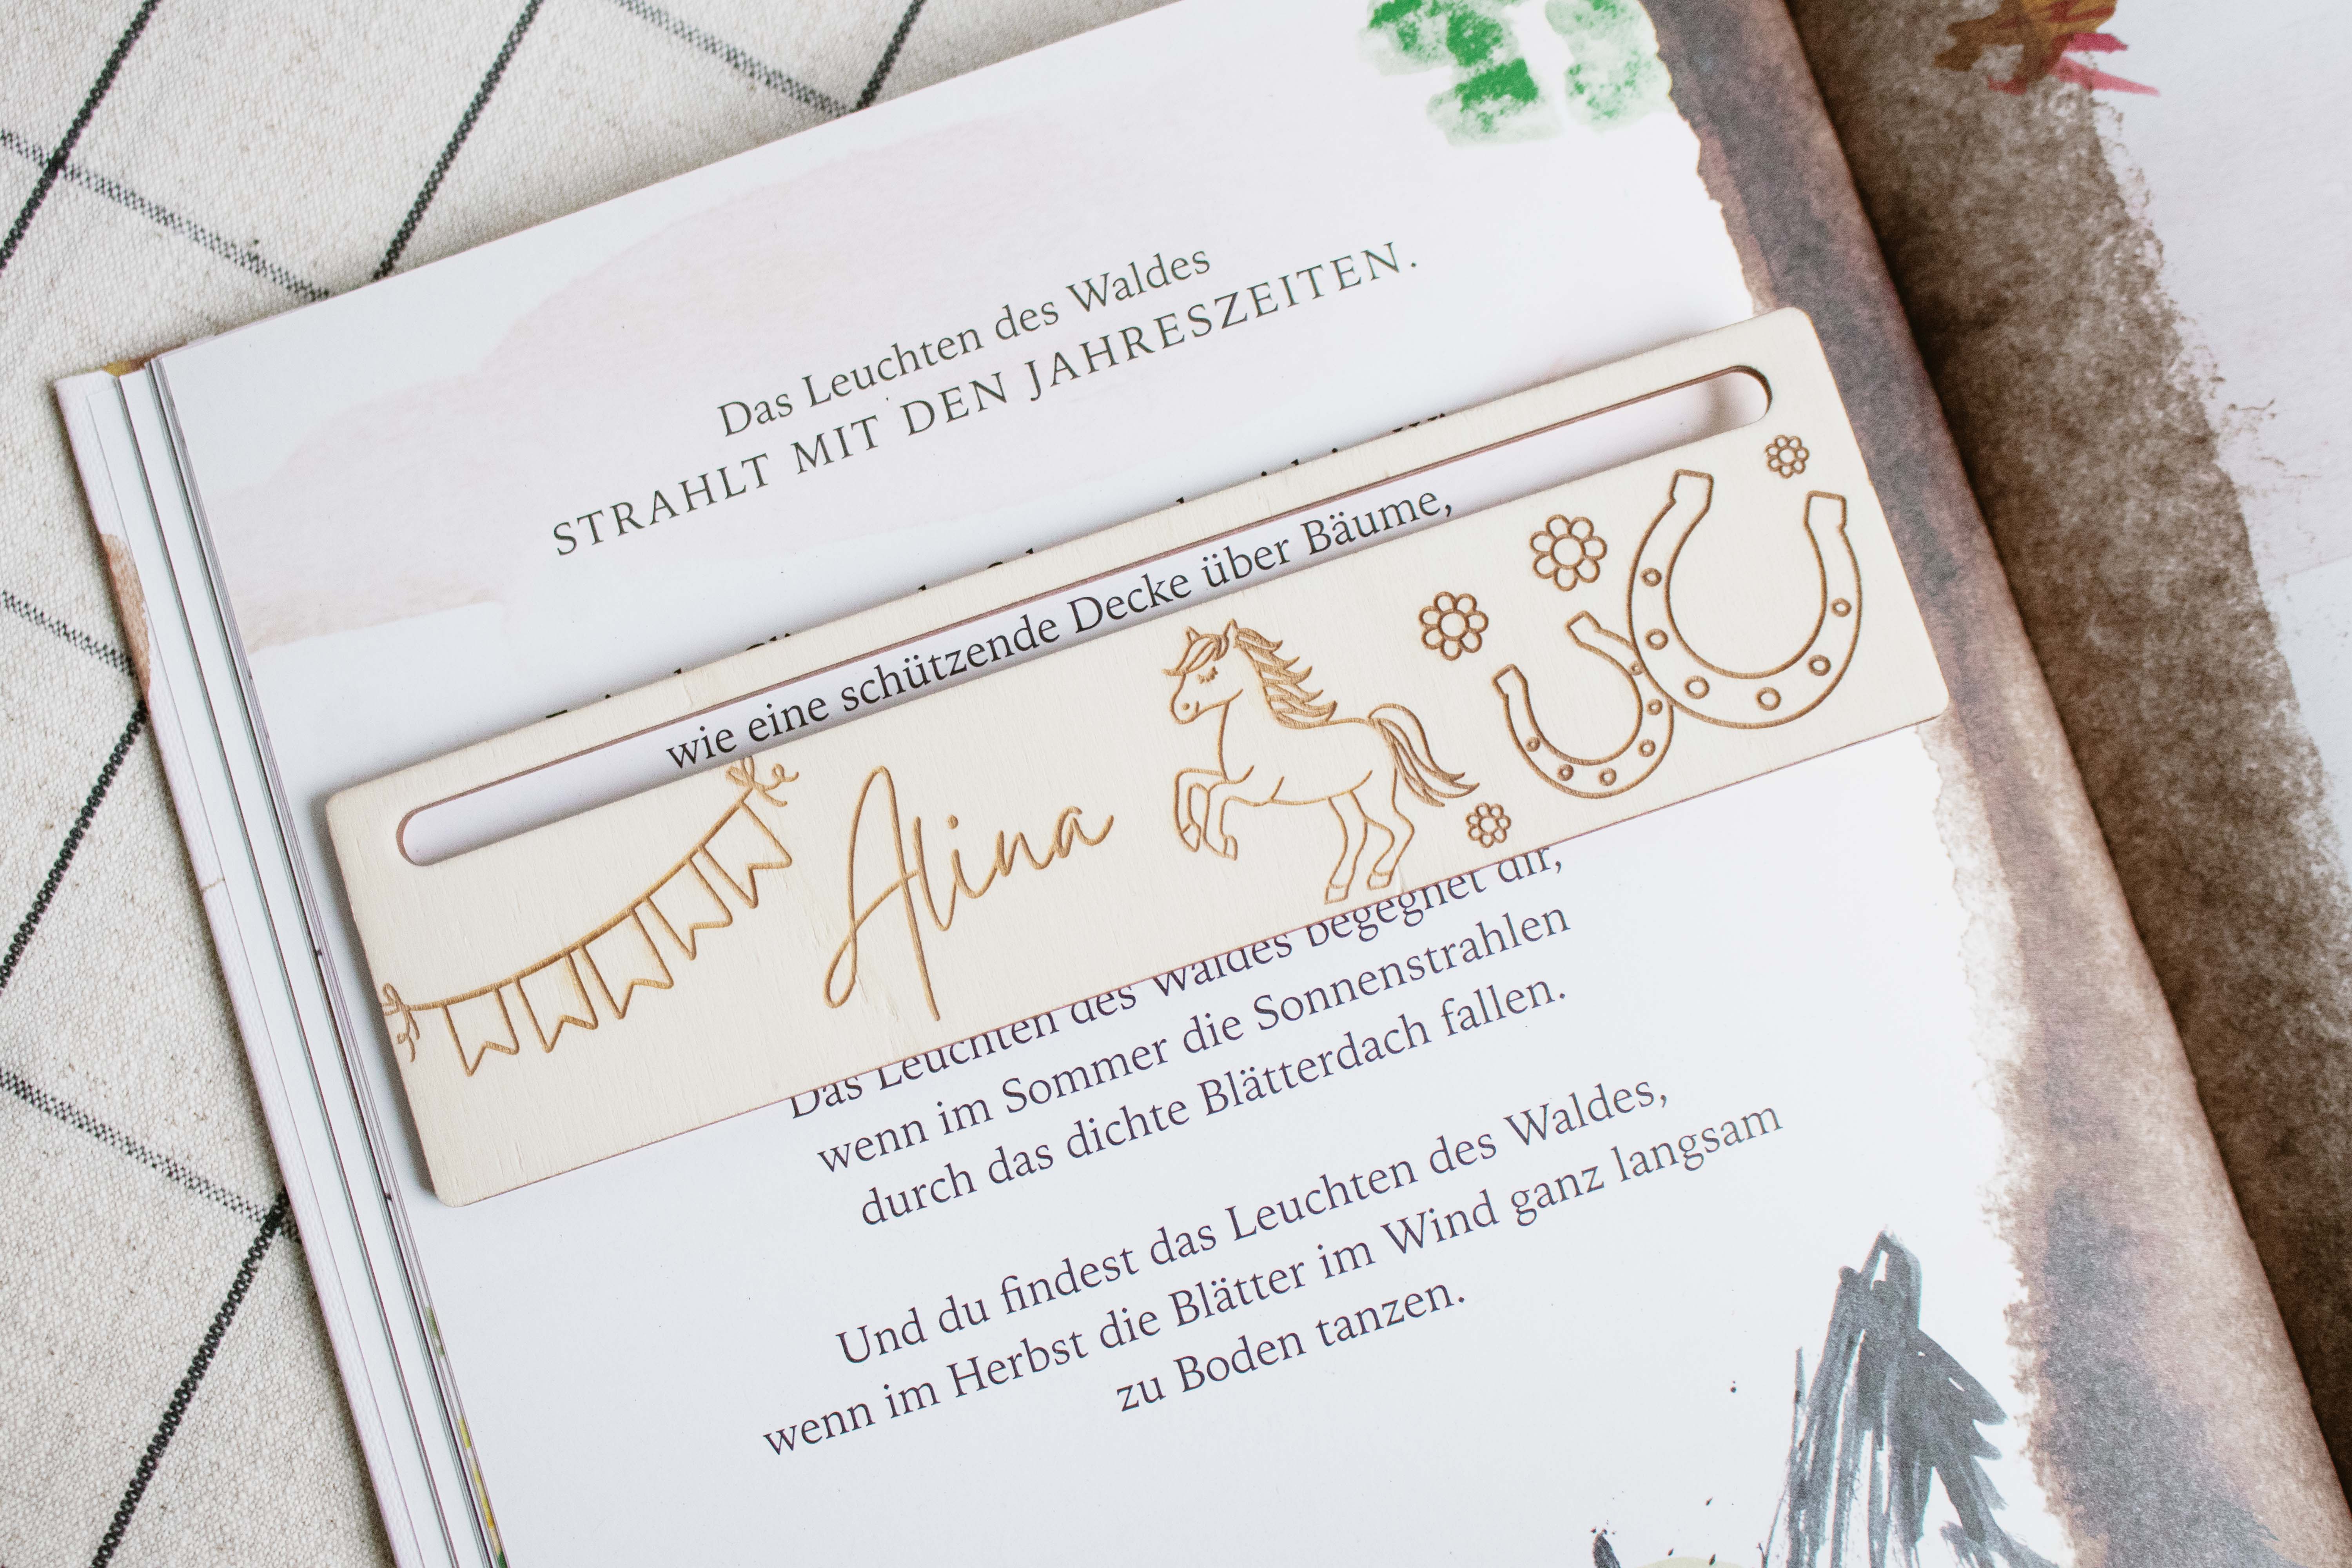 Das Leuchten des Waldes
STRAHLT MIT DEN JAHRESZEITEN.
wie eine schützende Decke über Bäume,
Alina
Das Leuchten des Waldes begegnet dir,
wenn im Sommer die Sonnenstrahlen
durch das dichte Blätterdach fallen.
Und du findest das Leuchten des Waldes,
wenn im Herbst die Blätter im Wind ganz langsam
zu Boden tanzen.